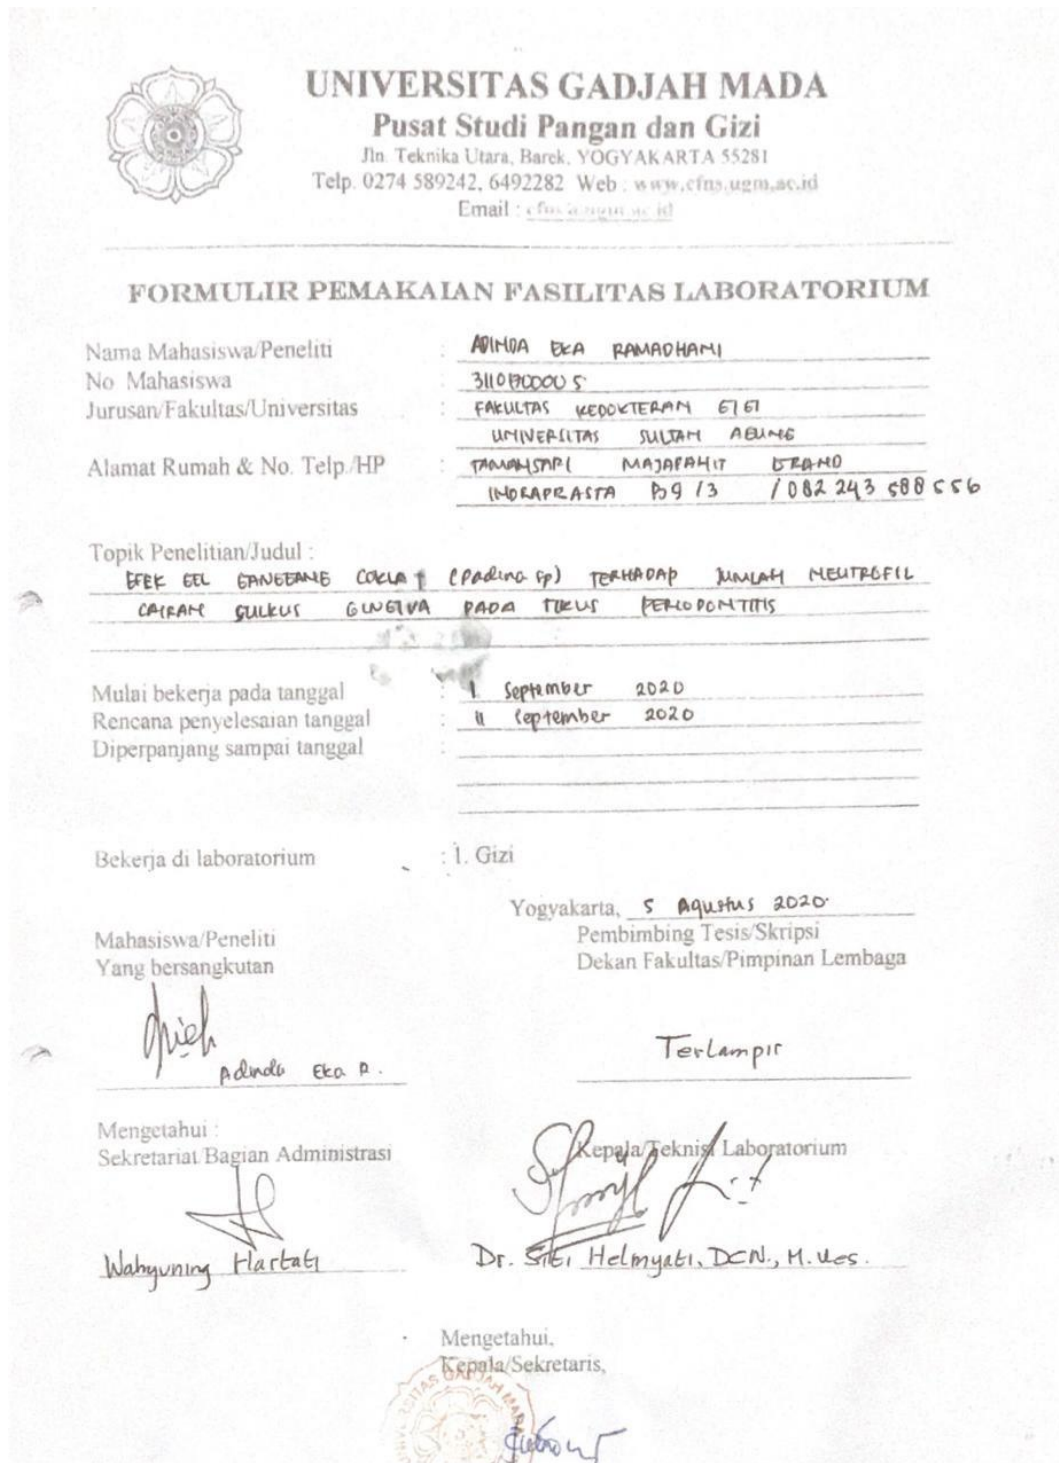 UNIVERSITAS GADJAH MADA
Pusat Studi Pangan dan Gizi
Jln. Teknika Utara, Barek, YOGYAKARTA 55281
Telp. 0274 589242, 6492282 Web : www.cfns.ugm.ac.id
Email :
FORMULIR PEMAKAIAN FASILITAS LABORATORIUM
Nama Mahasiswa/Peneliti : ADINDA EKA RAMADHANI
No Mahasiswa :
Jurusan/Fakultas/Universitas : FAKULTAS KEDOKTERAN GIGI
UNIVERSITAS SULTAN AGUNG
Alamat Rumah & No. Telp./HP : TAMANSARI MAJAPAHIT GRAND
INDRAPRASTA B9 / 3 / 082 243 588 556
Topik Penelitian/Judul :
EFEK GEL GANGGANG COKLAT (Padina sp) TERHADAP JUMLAH NEUTROFIL
CAIRAN SULKUS GINGIVA PADA TIKUS PERIODONTITIS
Mulai bekerja pada tanggal : 1 September 2020
Rencana penyelesaian tanggal : 11 September 2020
Diperpanjang sampai tanggal :
Bekerja di laboratorium : 1. Gizi
Yogyakarta, 5 Agustus 2020
Mahasiswa/Peneliti Pembimbing Tesis/Skripsi
Yang bersangkutan Dekan Fakultas/Pimpinan Lembaga
Terlampir
Adinda Eka R.
Mengetahui :
Sekretariat Bagian Administrasi Kepala/Teknisi Laboratorium
Wahyuning Hartati Dr. Siti Helmyati, DCN., M.Kes.
Mengetahui,
Kepala/Sekretaris,